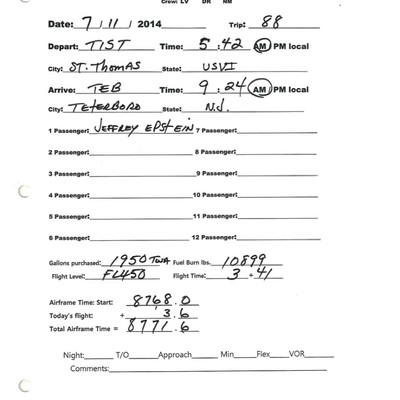 Crew: LV DR NM
Date: 7/11/2014 Trip: 88
Depart: TIST Time: 5:42 AM PM local
City: ST. Thomas State: USVI
Arrive: TEB Time: 9:24 AM PM local
City: TETERBORO State: N.J.
1 Passenger: JEFFREY EPSTEIN 7 Passenger:
2 Passenger: 8 Passenger:
3 Passenger: 9 Passenger:
4 Passenger: 10 Passenger:
5 Passenger: 11 Passenger:
6 Passenger: 12 Passenger:
Gallons purchased: 1950 TWA Fuel Burn lbs. 10899
Flight Level: FL450 Flight Time: 3 + 41
Airframe Time: Start: 8768.0
Today's flight: + 3.6
Total Airframe Time = 8771.6
Night: T/O Approach Min Flex VOR
Comments: